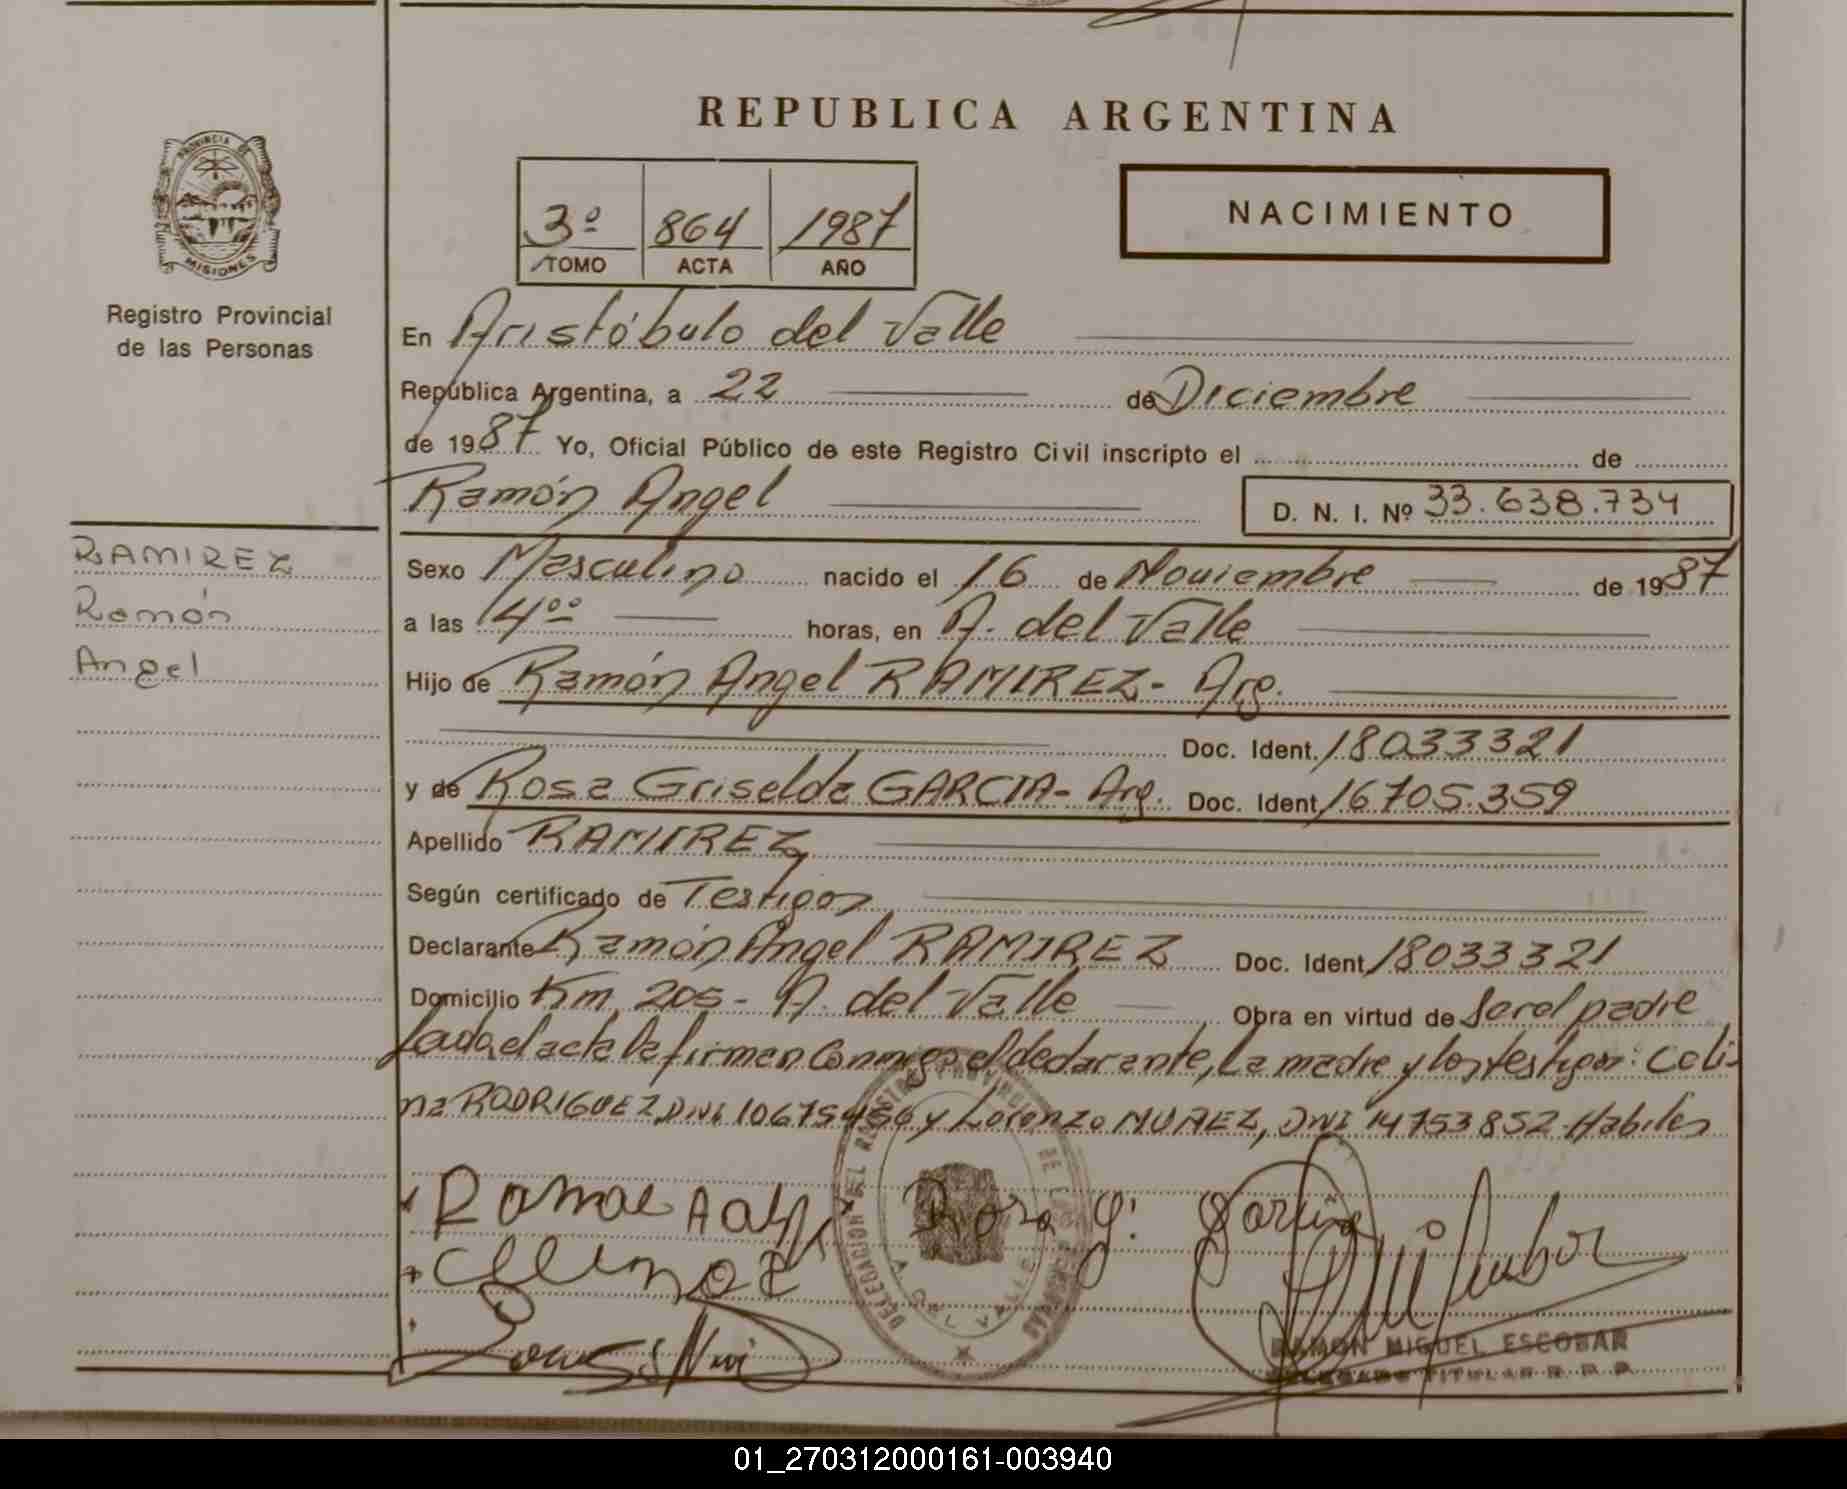 REPUBLICA ARGENTINA
PROVINCIA DE
MISIONES
Registro Provincial
de las Personas
3º 864 1987
TOMO ACTA AÑO
NACIMIENTO
En Aristóbulo del Valle
República Argentina, a 22 de Diciembre
de 1987 Yo, Oficial Público de este Registro Civil inscripto el de
Ramón Angel D. N. I. Nº 33.638.734
RAMIREZ
Ramón
Angel
Sexo Masculino nacido el 16 de Noviembre de 1987
a las 14ºº horas, en A. del Valle
Hijo de Ramón Angel RAMIREZ- Arg.
Doc. Ident. 18033321
y de Rosa Griselda GARCIA- Arg. Doc. Ident. 16705.359
Apellido RAMIREZ
Según certificado de Testigos
Declarante Ramón Angel RAMIREZ Doc. Ident. 18033321
Domicilio Km. 205- A. del Valle Obra en virtud de Ser el padre
Leida el acta la firman conmigo el declarante, la madre y los testigos: Celi-
na RODRIGUEZ, DNI. y Lorenzo NUÑEZ, DNI 14753852-Habiles
Rosa G. Garcia
DELEGACION DEL REGISTRO PROVINCIAL DE LAS PERSONAS
A. DEL VALLE
RAMON MIGUEL ESCOBAR
DELEGADO TITULAR R. P. P.
01_270312000161-003940